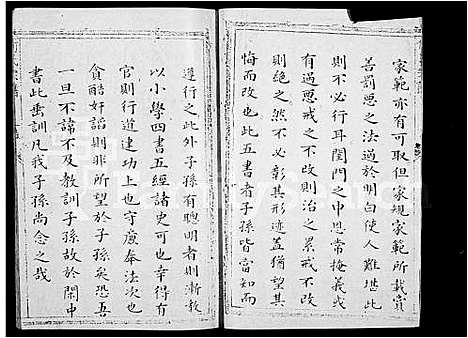 家範亦有可取但家規家範所載賞
善罰惡之法過於明白使人難堪此
則不必行耳閨門之中恩常掩義或
有過惡戒之不改則治之累戒不改
則絕之然不必彰其形迹蓋猶望其
悔而改也此五書者子孫皆當知而
遵行之此外子孫有聰明者則漸教
以小學四書五經諸史可也幸得有
官則行道建功上也守廉奉法次也
貪酷奸謟則非所望於子孫矣恐吾
一旦不諱不及教訓子孫故於閒中
書此垂訓凡我子孫尚念之哉